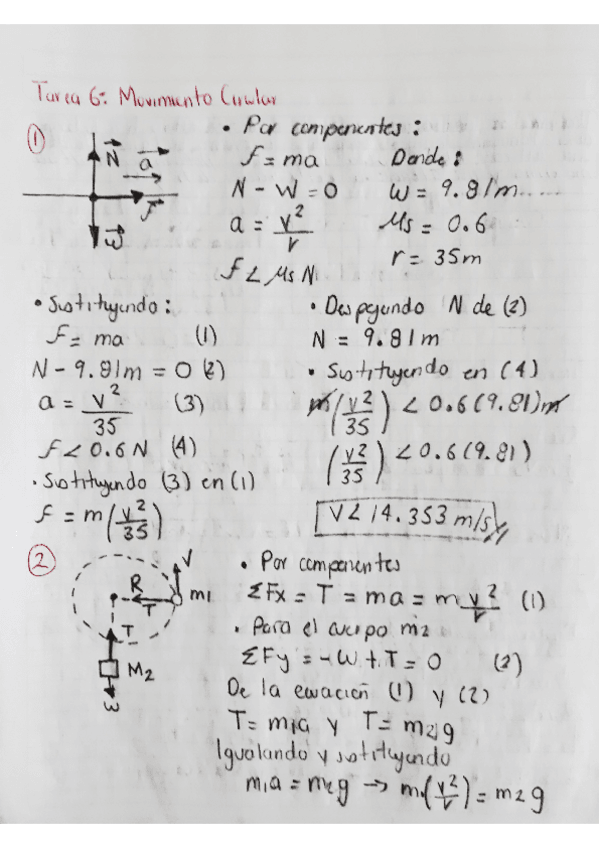 Tarea 6: Movimiento Circular
①
N a
f
w
• Por componentes:
f = ma
N - W = 0
a = v²/r
f < Ms N
Donde:
W = 9.81m.....
Ms = 0.6
r = 35m
• Sustituyendo:
f = ma (1)
N - 9.81m = 0 (2)
a = v²/35 (3)
f < 0.6 N (4)
• Sustituyendo (3) en (1)
f = m(v²/35)
• Despejando N de (2)
N = 9.81m
• Sustituyendo en (4)
m(v²/35) < 0.6(9.81)m
(v²/35) < 0.6(9.81)
V < 14.353 m/s
②
V
R
m1
T
T
M2
w
• Por componentes
ΣFx = T = ma = m v²/r (1)
• Para el cuerpo m2
ΣFy = -W + T = 0 (2)
De la ecuación (1) y (2)
T = m1a y T = m2g
Igualando y sustituyendo
m1a = m2g → m1(v²/r) = m2g